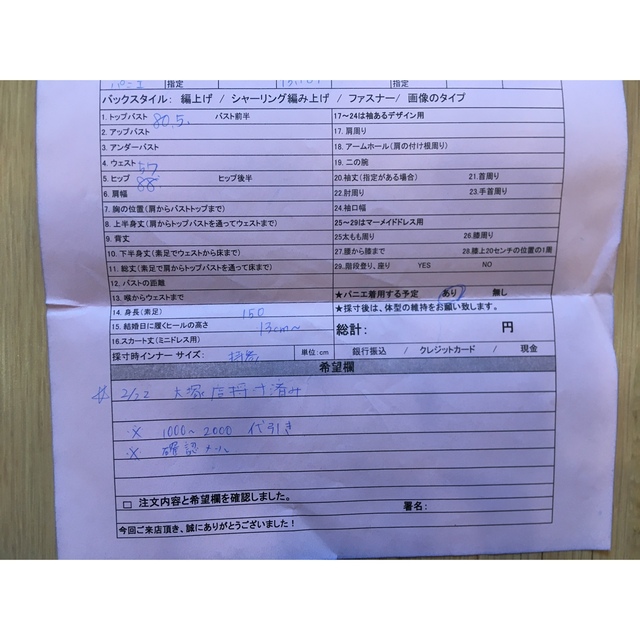 パニエ 指定 指定
バックスタイル： 編上げ / シャーリング編み上げ / ファスナー/ 画像のタイプ
1.トップバスト 80.5. バスト前半 17～24は袖あるデザイン用
2.アップバスト 17.肩周り
3.アンダーバスト 18.アームホール(肩の付け根周り)
4.ウェスト 57 19.二の腕
5.ヒップ 88. ヒップ後半 20.袖丈(指定がある場合) 21.首周り
6.肩幅 22.肘周り 23.手首周り
7.胸の位置(肩からバストトップまで) 24.袖口幅
8.上半身丈(肩からトップバストを通ってウェストまで) 25～29はマーメイドドレス用
9.背丈 25太もも周り 26.膝周り
10.下半身丈(素足でウェストから床まで) 27.腰から膝まで 28.膝上20センチの位置の1周
11.総丈(素足で肩からトップバストを通って床まで) 29.階段登り、座り YES NO
12.バストの距離
13.喉からウェストまで ★パニエ着用する予定 あり 無し
14.身長(素足) 150 ★採寸後は、体型の維持をお願い致します。
15.結婚日に履くヒールの高さ 13cm～
16.スカート丈(ミニドレス用) 総計： 円
採寸時インナー サイズ： 持参 単位：cm 銀行振込 / クレジットカード / 現金
希望欄
2/22 大塚店採寸済み
※ 1000～2000 代引き
※ 確認メール
□ 注文内容と希望欄を確認しました。 署名：
今回ご来店頂き、誠にありがとうございました！